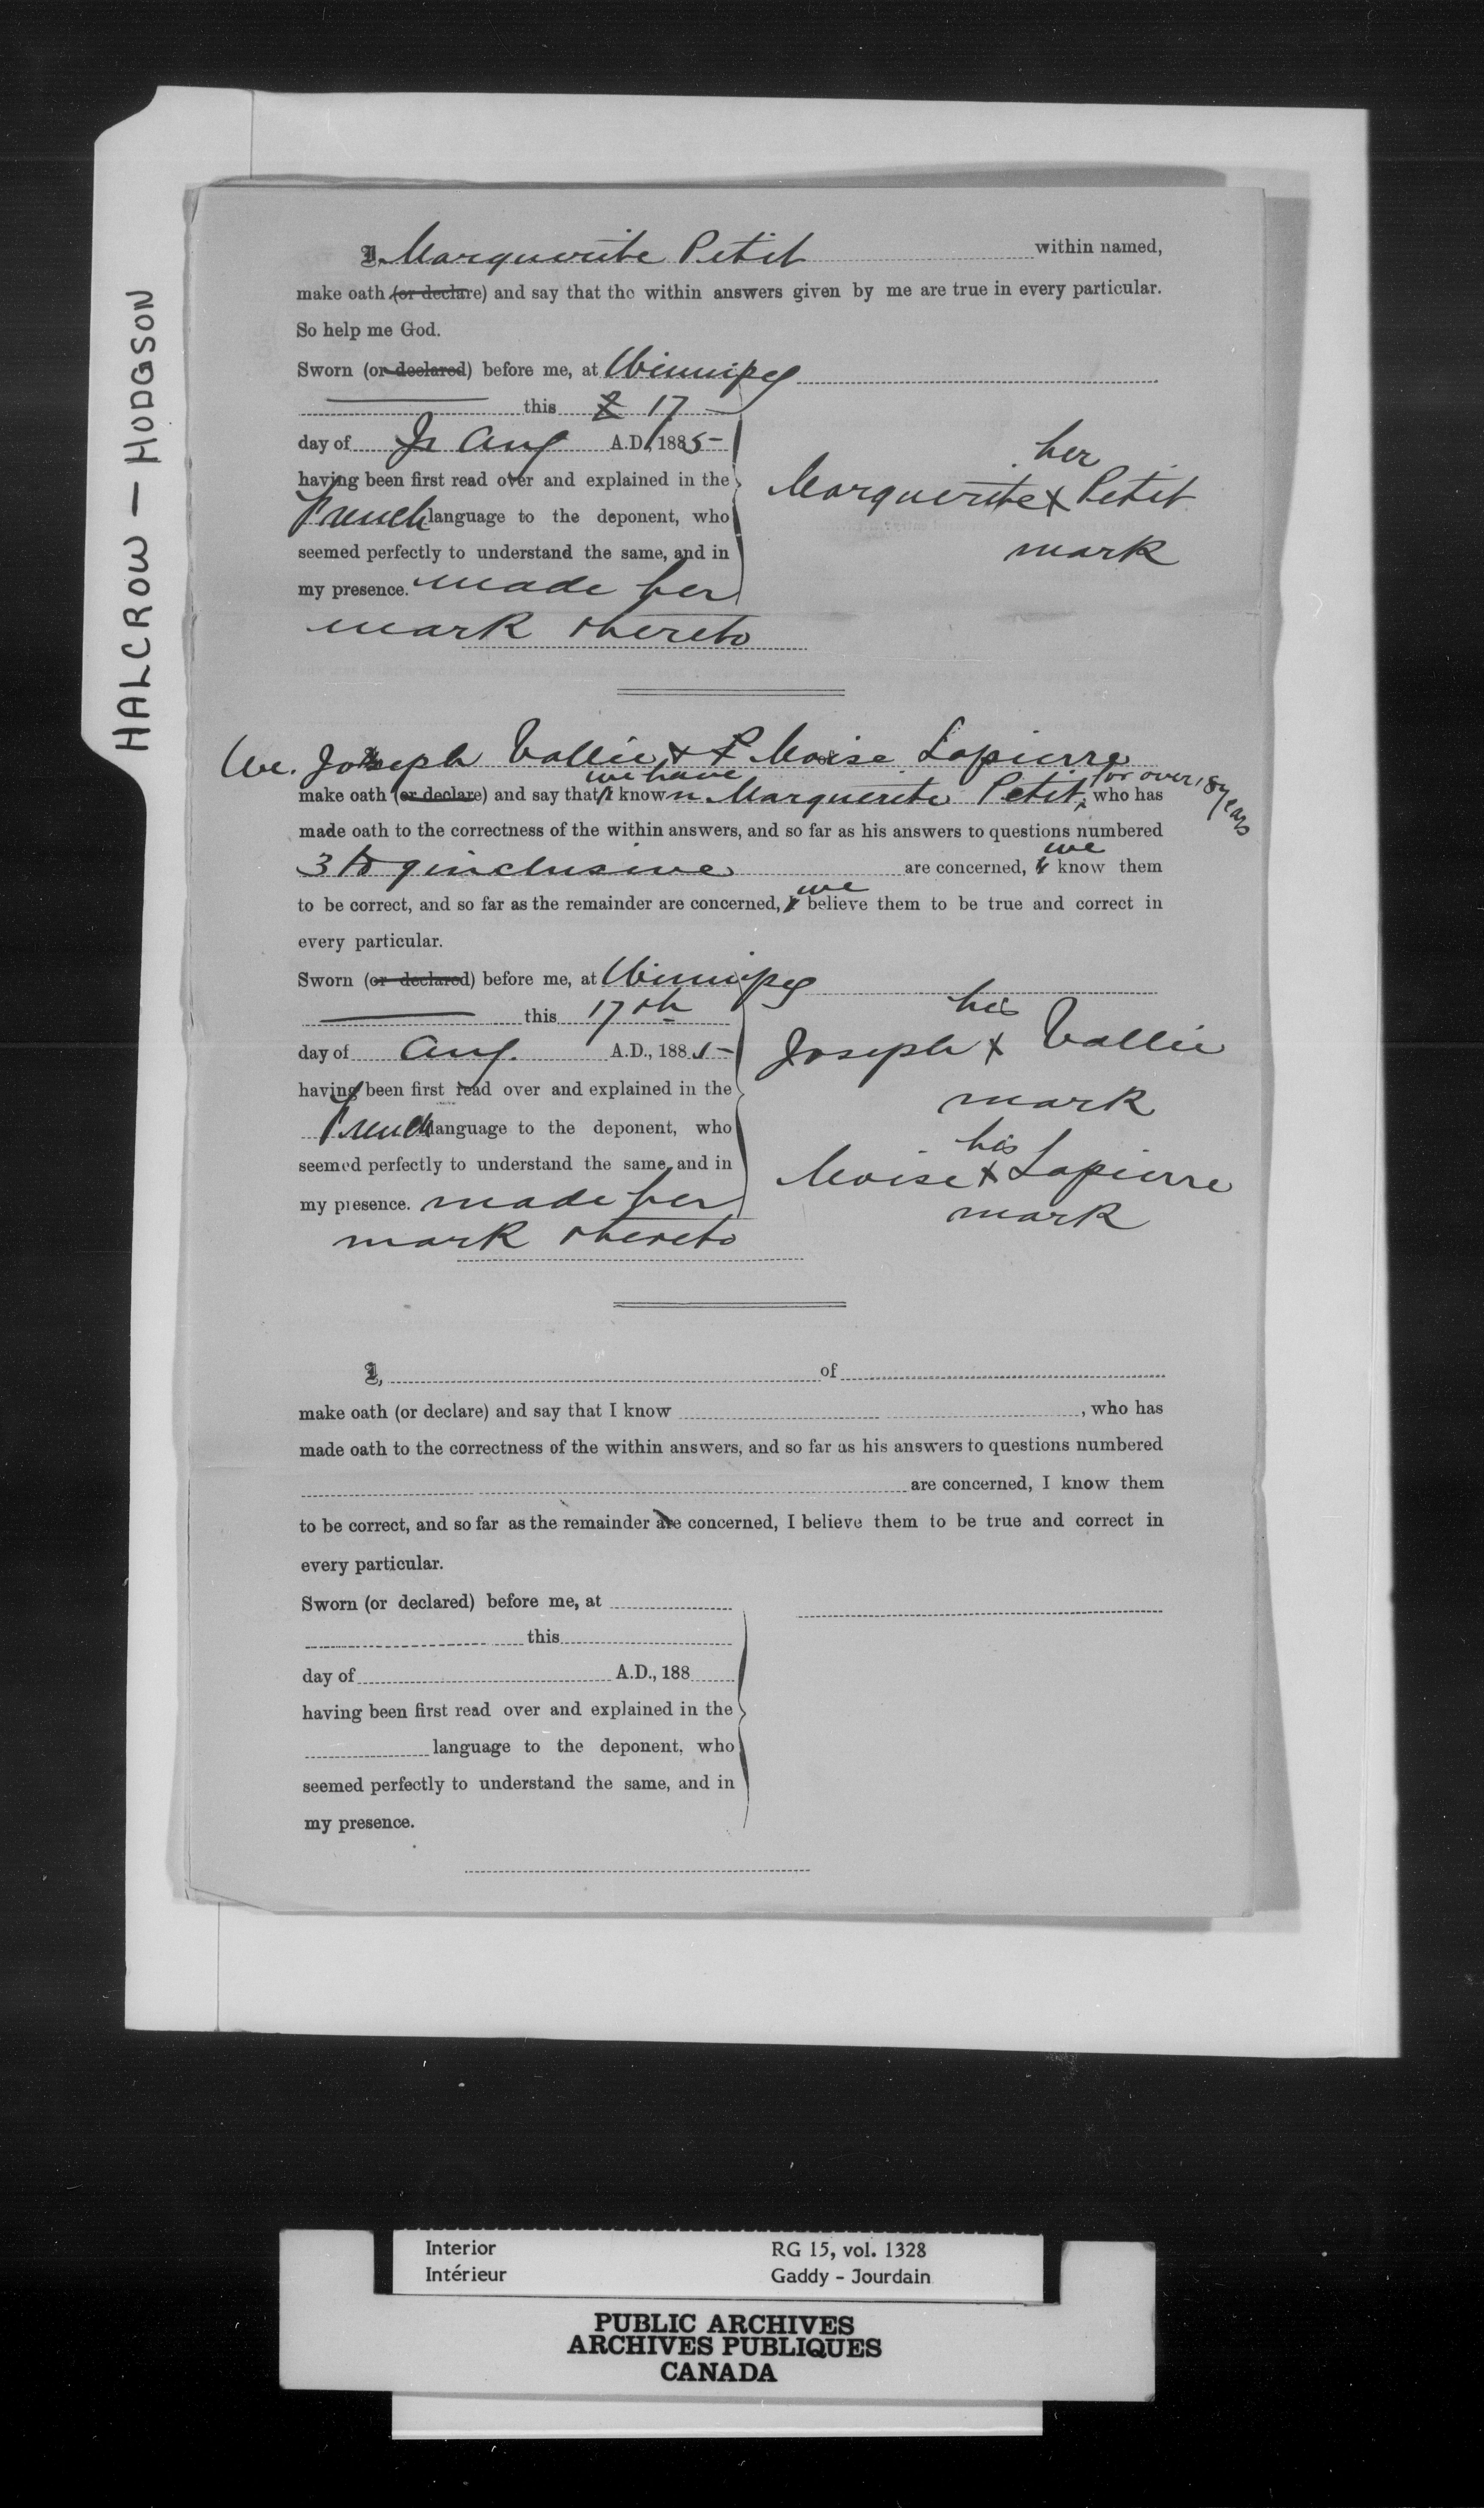 HALCROW — HODGSON
I, Marguerite Petit within named,
make oath (or declare) and say that the within answers given by me are true in every particular.
So help me God.
Sworn (or declared) before me, at Winnipeg
this 17
day of Aug A.D., 1885
her
having been first read over and explained in the
Marguerite x Petit
French language to the deponent, who
mark
seemed perfectly to understand the same, and in
my presence. made her
mark thereto
We. Joseph Vallie & Moise Lapierre
we have for over 18 years
make oath (or declare) and say that I known Marguerite Petit, who has
made oath to the correctness of the within answers, and so far as his answers to questions numbered
we
3 to 9 inclusive are concerned, I know them
we
to be correct, and so far as the remainder are concerned, I believe them to be true and correct in
every particular.
Sworn (or declared) before me, at Winnipeg
this 17th
his
day of Aug. A.D., 1885
Joseph x Vallie
having been first read over and explained in the
mark
French language to the deponent, who
his
seemed perfectly to understand the same, and in
Moise x Lapierre
my presence. made her
mark
mark thereto
I, of
make oath (or declare) and say that I know , who has
made oath to the correctness of the within answers, and so far as his answers to questions numbered
are concerned, I know them
to be correct, and so far as the remainder are concerned, I believe them to be true and correct in
every particular.
Sworn (or declared) before me, at
this
day of A.D., 188
having been first read over and explained in the
language to the deponent, who
seemed perfectly to understand the same, and in
my presence.
Interior RG 15, vol. 1328
Intérieur Gaddy - Jourdain
PUBLIC ARCHIVES
ARCHIVES PUBLIQUES
CANADA